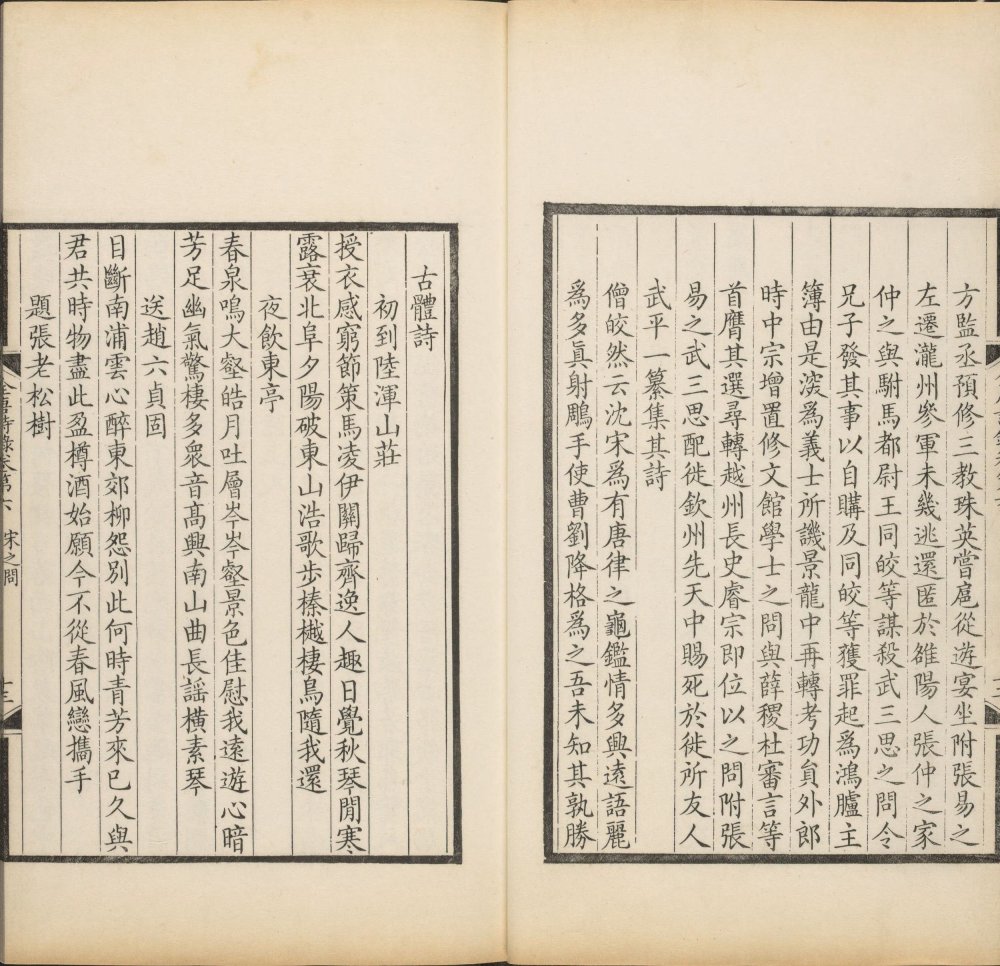 方監丞預修三教珠英嘗扈從遊宴坐附張易之
左遷瀧州參軍未幾逃還匿於雒陽人張仲之家
仲之與駙馬都尉王同皎等謀殺武三思之問令
兄子發其事以自贖及同皎等獲罪起為鴻臚主
簿由是深為義士所譏景龍中再轉考功員外郎
時中宗增置修文館學士之問與薛稷杜審言等
首膺其選尋轉越州長史睿宗即位以之問附張
易之武三思配徙欽州先天中賜死於徙所友人
武平一纂集其詩
僧皎然云沈宋為有唐律之龜鑑情多興遠語麗
為多真射鵰手使曹劉降格為之吾未知其孰勝
古體詩
初到陸渾山莊
授衣感窮節策馬凌伊關歸齊逸人趣日覺秋琴閒寒
露衰北阜夕陽破東山浩歌步榛樾棲鳥隨我還
夜飲東亭
春泉鳴大壑皓月吐層岑岑壑景色佳慰我遠遊心暗
芳足幽氣驚棲多眾音高興南山曲長謠橫素琴
送趙六貞固
目斷南浦雲心醉東郊柳怨別此何時青芳來已久與
君共時物盡此盈樽酒始願今不從春風戀攜手
題張老松樹
全唐詩錄卷第六 宋之問
十三